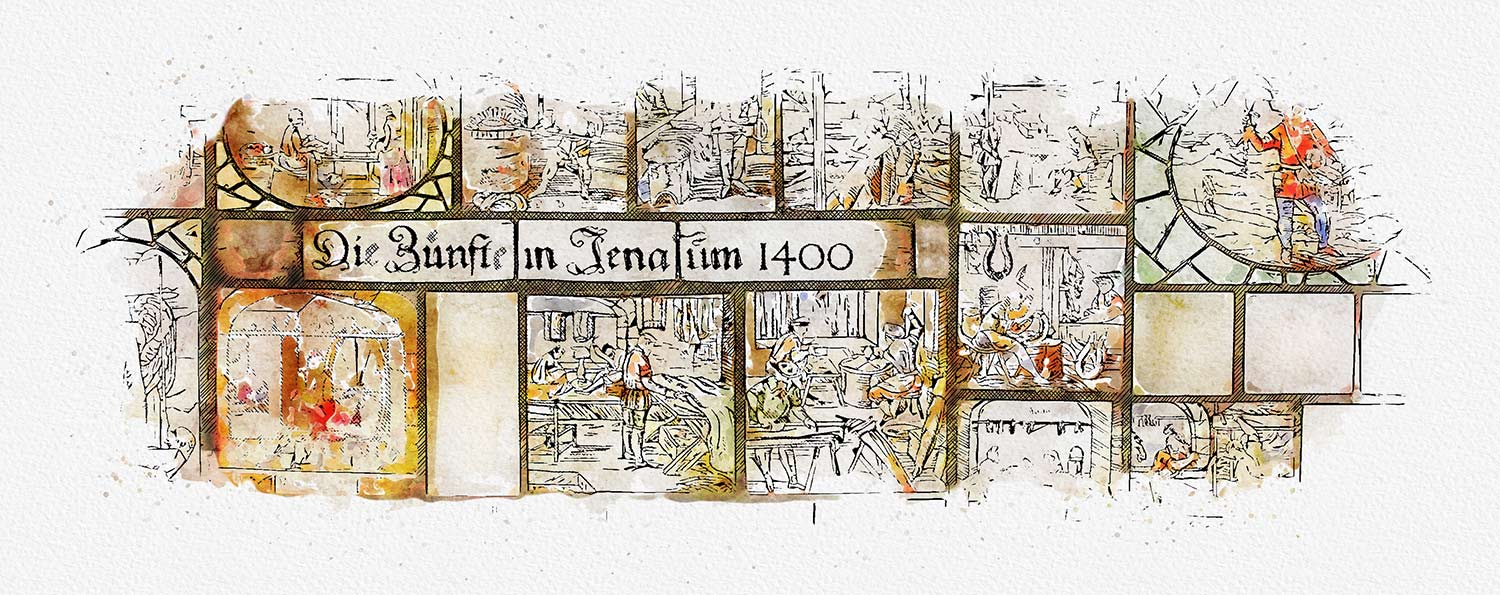 Die Zünfte in Jena um 1400